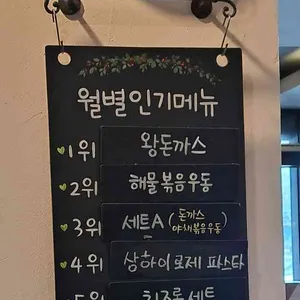 월별인기메뉴
1위 왕돈까스
2위 해물볶음우동
3위 세트A (돈까스 야채볶음우동)
4위 상하이로제 파스타
5위 치즈롤세트